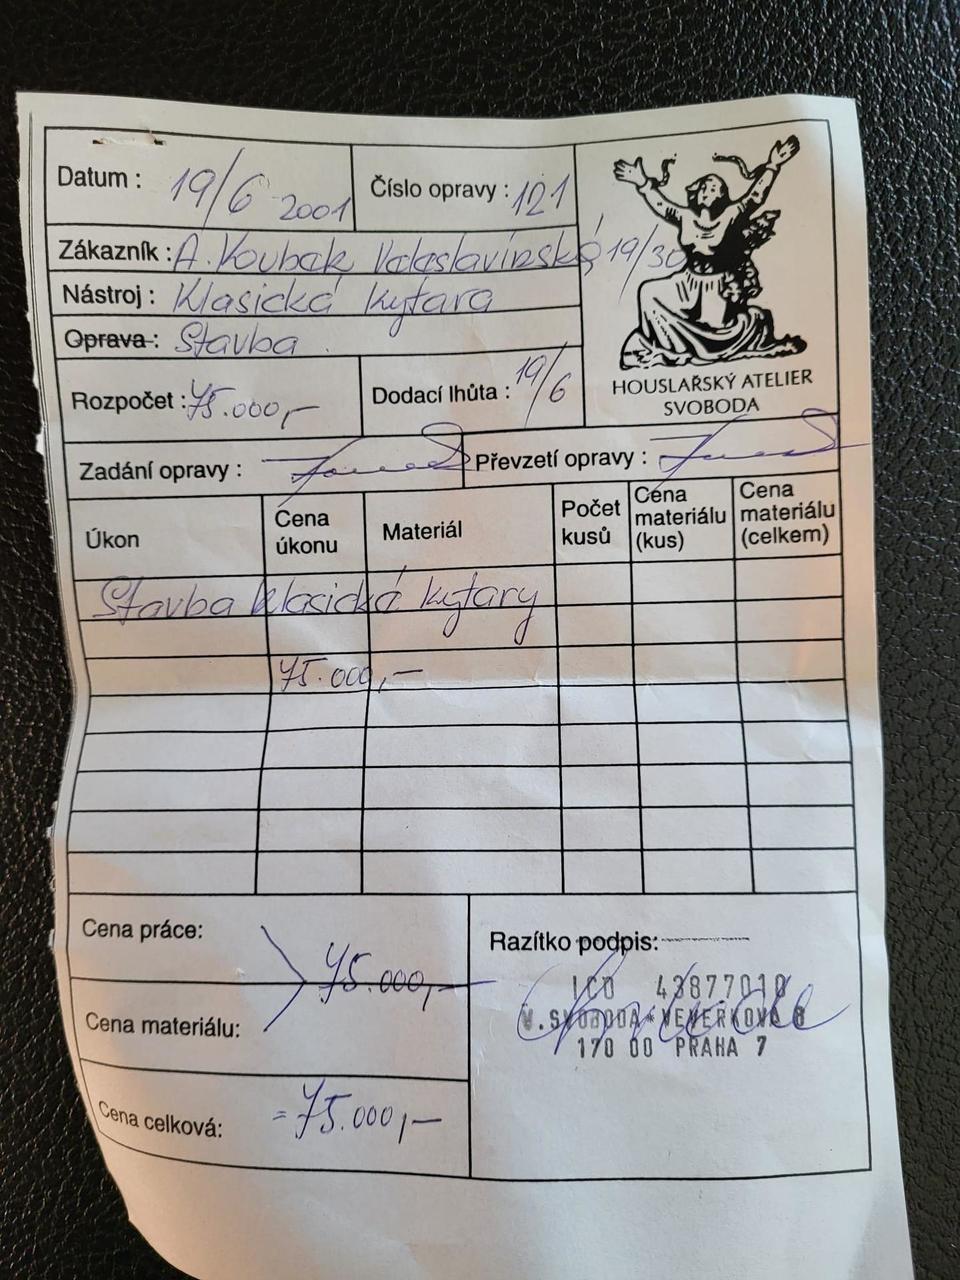 Datum : 19/6 2001
Číslo opravy : 121
Zákazník : A. Koubek Veleslavínská 19/30
Nástroj : Klasická kytara
Oprava : Stavba
HOUSLAŘSKÝ ATELIER
SVOBODA
Rozpočet : 75.000,-
Dodací lhůta : 19/6
Zadání opravy :
Převzetí opravy :
Úkon
Cena úkonu
Materiál
Počet kusů
Cena materiálu (kus)
Cena materiálu (celkem)
Stavba klasické kytary
75.000,-
Cena práce:
75.000,-
Cena materiálu:
Cena celková: = 75.000,-
Razítko podpis:
IČO 43877010
V.SVOBODA*VEVERKOVA 8
170 00 PRAHA 7